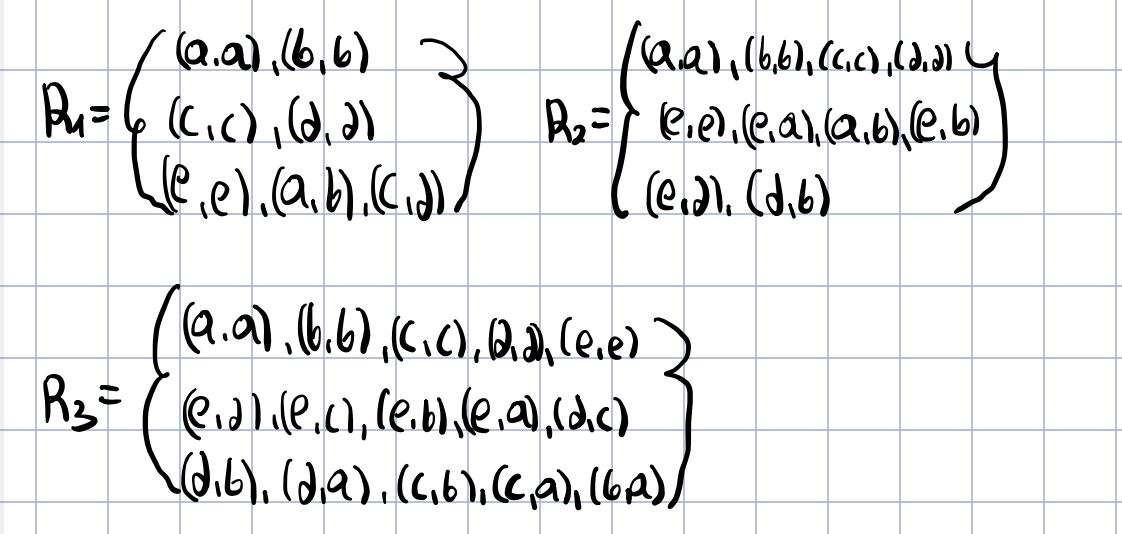 R₁ = { (a,a), (b,b)
(c,c), (d,d)
(e,e), (a,b), (c,d) }
R₂ = { (a,a), (b,b), (c,c), (d,d)
(e,e), (e,a), (a,b), (e,b)
(e,d), (d,b) }
R₃ = { (a,a), (b,b), (c,c), (d,d), (e,e)
(e,d), (e,c), (e,b), (e,a), (d,c)
(d,b), (d,a), (c,b), (c,a), (b,a) }